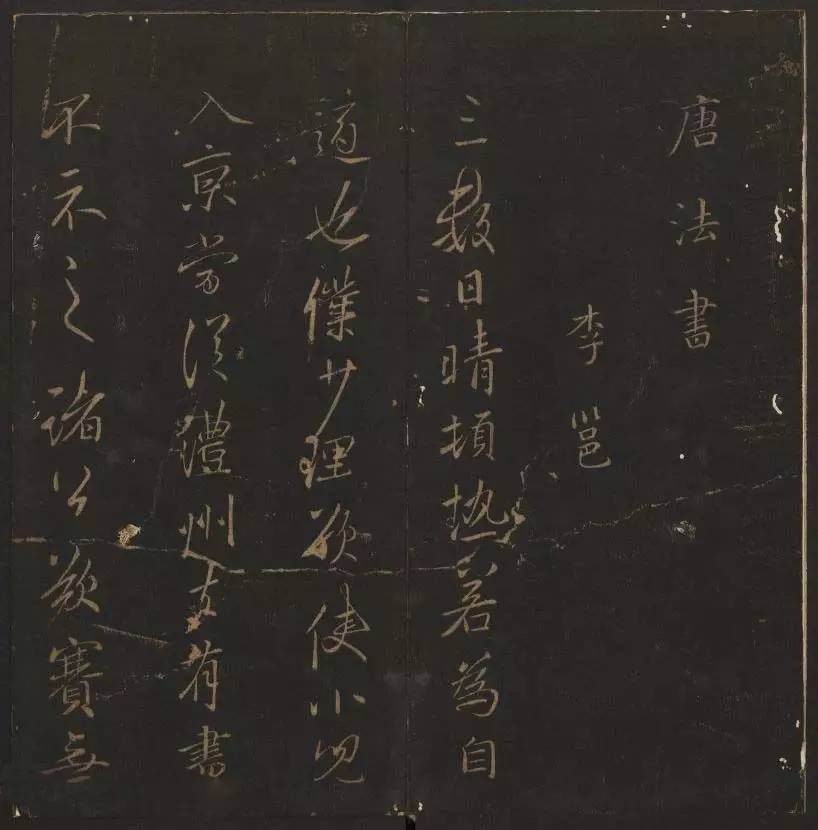 唐法書
李邕
三數日晴頓熱若為自
適也僕少理欲使小兒
入京當從澧州去有書
不示之諸公欲賽無